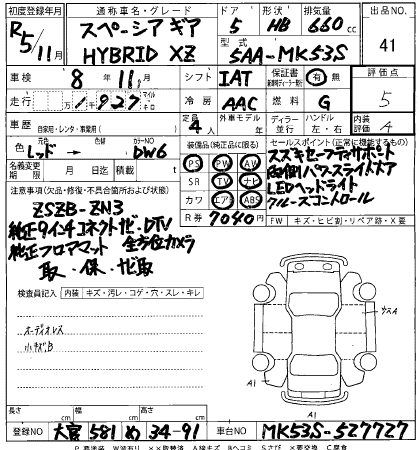 初度登録年月 通称車名・グレード ドア 形状 排気量 出品No.
R5/11月 スペーシア ギア 5 HB 660cc 41
HYBRID XZ 型式 5AA-MK53S
車検 8年11月 シフト IAT 保証書 有 無 評価点
走行 1,927 マイル キロ 冷房 AAC 燃料 G 5
車歴 自家用・レンタ・事業用( ) 定員 4人 外車モデル ディーラー 並行 ハンドル 左・右 内装評価 4
色 元色 レッド → 色替 カラーNo DW6
名義変更期限 月 日迄 積載
装備品(純正品に限る) セールスポイント(正常に機能する)
PS PW AV
SR TV ナビ
カワ エアB ABS
R券 7040円
スズキセーフティサポート
両側パワースライドドア
LEDヘッドライト
クルーズコントロール
FW キズ・ヒビ割・リペア跡・X(要交換)
注意事項(欠品・修復・不具合箇所および状態)
ZSZB-ZN3
純正9インチコネクトナビ・DTV
純正フロアマット 全方位カメラ
取・保・ナビ取
検査員記入 内装 キズ・汚レ・コゲ・穴・スレ・キレ
オーディオレス
小キズB
ウスA
A1 A1
長さ cm 幅 cm 高さ cm
登録No 大宮 581 め 34-91 車台No MK53S-527727